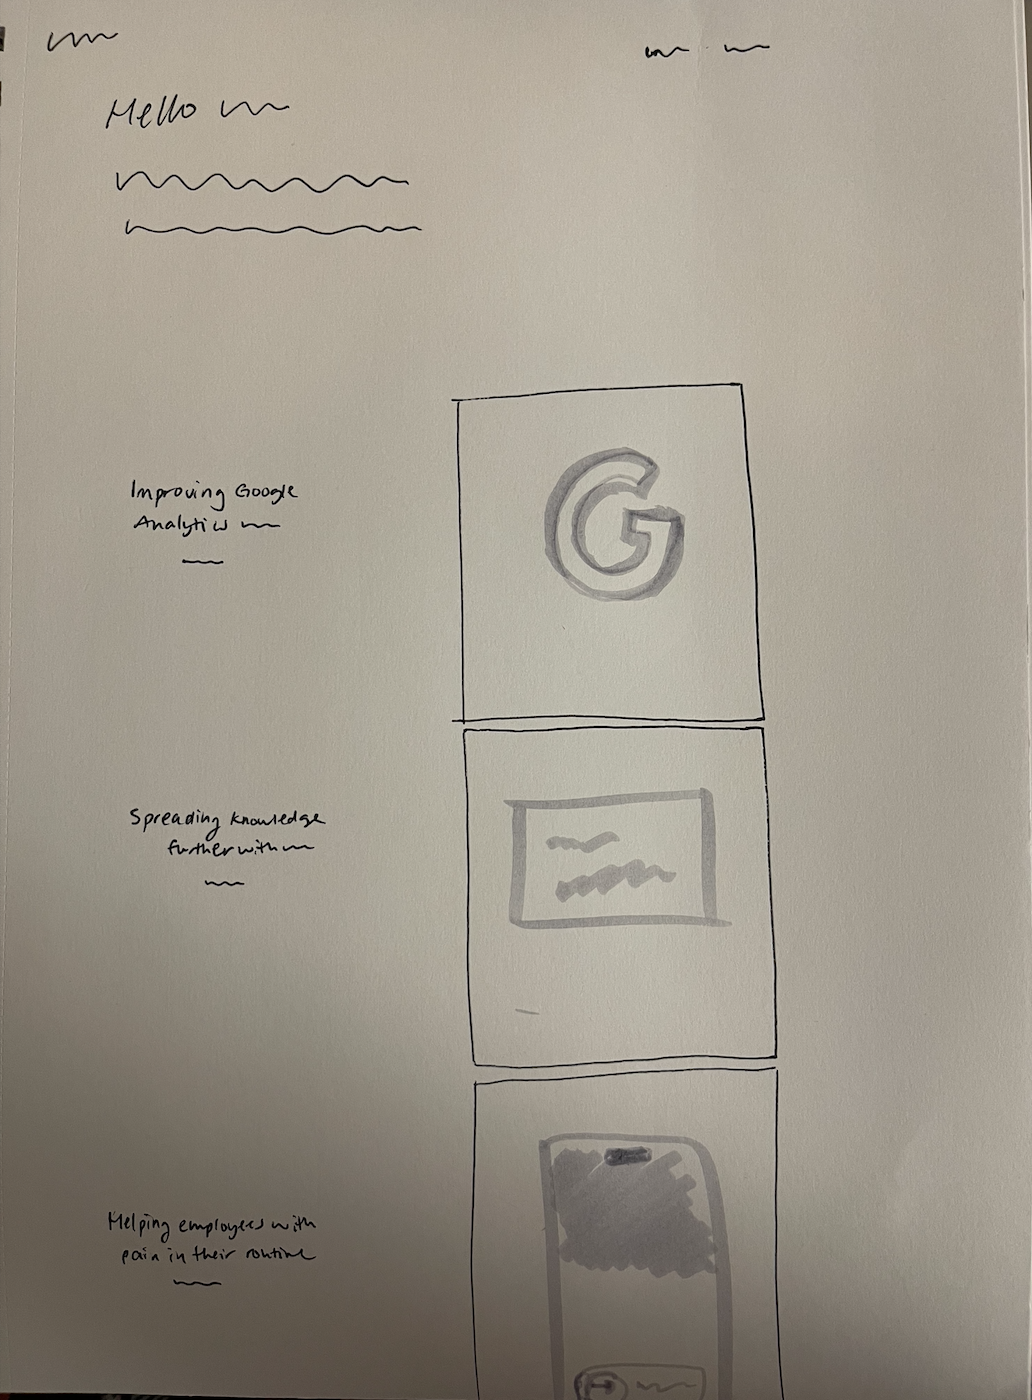 Hello
Improving Google
Analytics
G
Spreading knowledge
further with
Helping employees with
pain in their routine